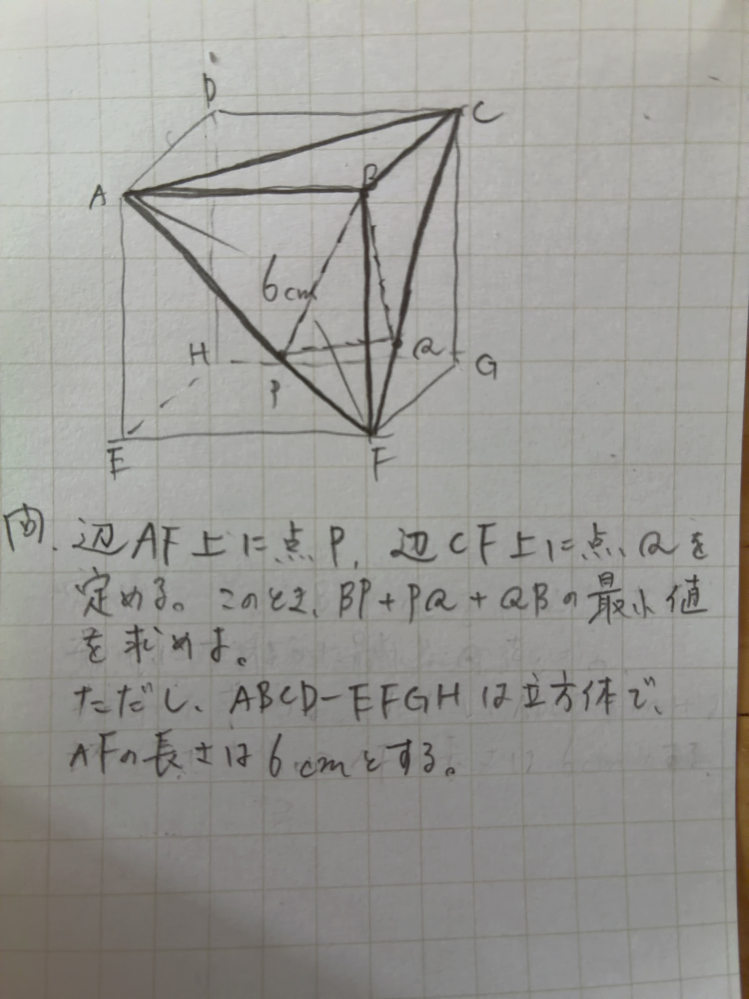 D
C
A
B
6cm
H
P
Q
G
E
F
問. 辺AF上に点P, 辺CF上に点Qを
定める。このとき、BP+PQ+QBの最小値
を求めよ。
ただし、ABCD-EFGHは立方体で、
AFの長さは6cmとする。